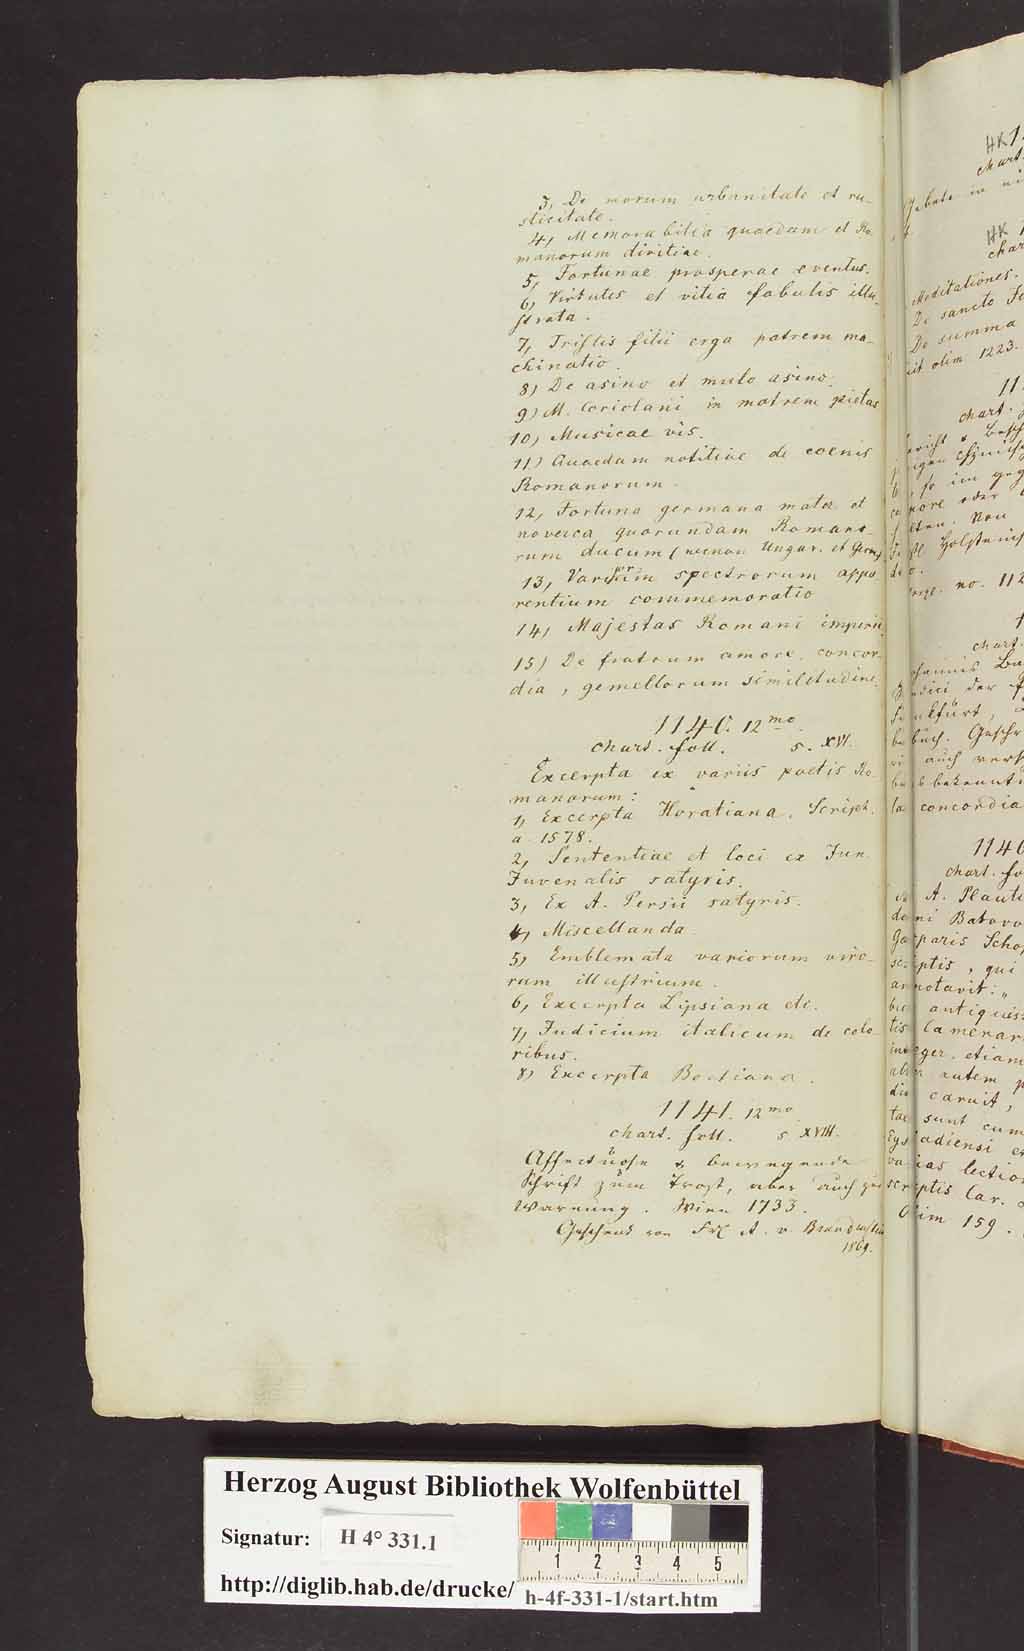 3, De morum urbanitate et ru-
sticitate.
4, Memorabilia quaedam et Ro-
manorum divitiae.
5, Fortunae prosperae eventus.
6, Virtutes et vitia fabulis illu-
strata.
7, Tristis filii erga patrem ma-
chinatio.
8) De asino et mulo asino.
9) M. Coriolani in matrem pietas
10) Musicae vis.
11) Quaedam notitiae de coenis
Romanorum.
12, Fortuna germana mater et
noverca quorundam Romano-
rum ducum (necnon Ungar. et Germ.)
13, Variorum spectrorum appa-
rentium commemoratio
14, Majestas Romani imperii
15) De fratrum amore, concor-
dia, gemellorum similitudine.
1140. 12mo.
chart. foll. s. XVI.
Excerpta ex variis poetis Ro-
manorum:
1, Excerpta Horatiana. Script.
a 1578.
2, Sententiae et loci ex Jun.
Juvenalis satyris.
3, Ex A. Persii satyris.
4, Miscellanda
5, Emblemata variorum viro-
rum illustrium.
6, Excerpta Lipsiana etc.
7, Judicium italicum de colo-
ribus.
8) Excerpta Boetiana.
1141. 12mo
chart. foll. s XVIII.
Affectuose & bewegende
Schrift zum Trost, aber auch zur
Warnung. Wien 1733.
Geschenk von A. v.
1869.
HK
chart.
HK
char
Meditationes.
De sancto
De summa
olim 1223.
11
chart.
no. 112
chart.
auch
concordia
1140
chart. fo
A. Plauti
Batavo
Gasparis Schop
scriptis, qui
annotavit:
antiquiss
Camerar
integer, etiam
autem
caruit,
sunt cum
et
varias lection
scriptis Car.
Olim 159.
Herzog August Bibliothek Wolfenbüttel
Signatur: H 4° 331.1
1 2 3 4 5
http://diglib.hab.de/drucke/ h-4f-331-1/start.htm